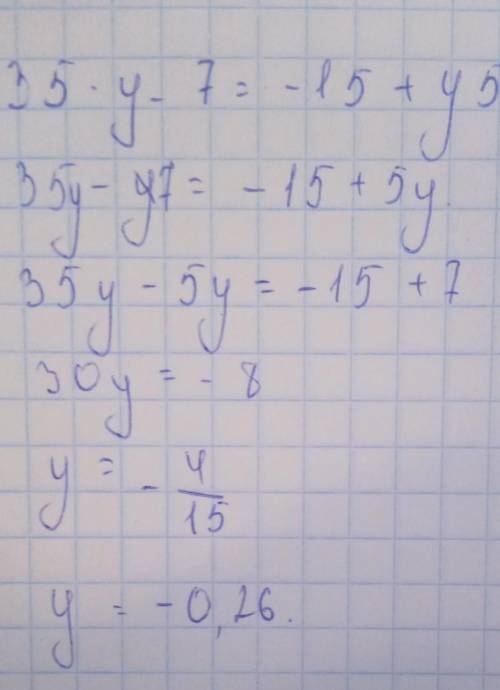 35 · y - 7 = -15 + y5
35y - 7 = -15 + 5y.
35y - 5y = -15 + 7
30y = -8
y = - 4/15
y = -0,26.